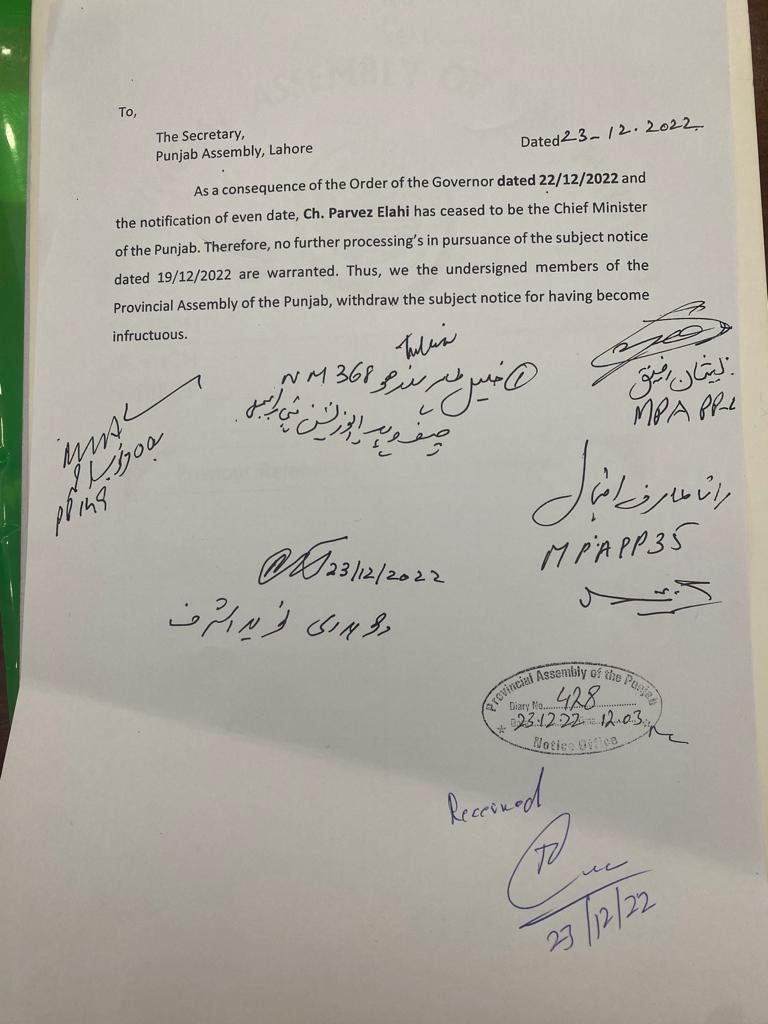 To,
The Secretary,
Punjab Assembly, Lahore
Dated 23-12.2022.
As a consequence of the Order of the Governor dated 22/12/2022 and
the notification of even date, Ch. Parvez Elahi has ceased to be the Chief Minister
of the Punjab. Therefore, no further processing's in pursuance of the subject notice
dated 19/12/2022 are warranted. Thus, we the undersigned members of the
Provincial Assembly of the Punjab, withdraw the subject notice for having become
infructuous.
① خلیل طاہر سندھو NM 368
چیف وہپ اپوزیشن
ذیشان رفیق
MPA PP-
PP 149
رانا عارف اقبال
MPA PP35
23/12/2022
چوہدری نوید اشرف
Provincial Assembly of the Punjab
Diary No. 428
23.12.22 12.03
Notice Office
Received
23/12/22